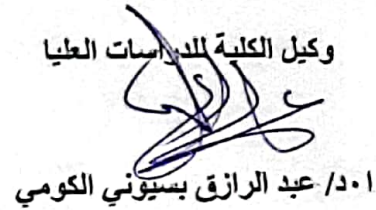 وكيل الكلية للدراسات العليا
ا.د/ عبد الرازق بسيوني الكومي